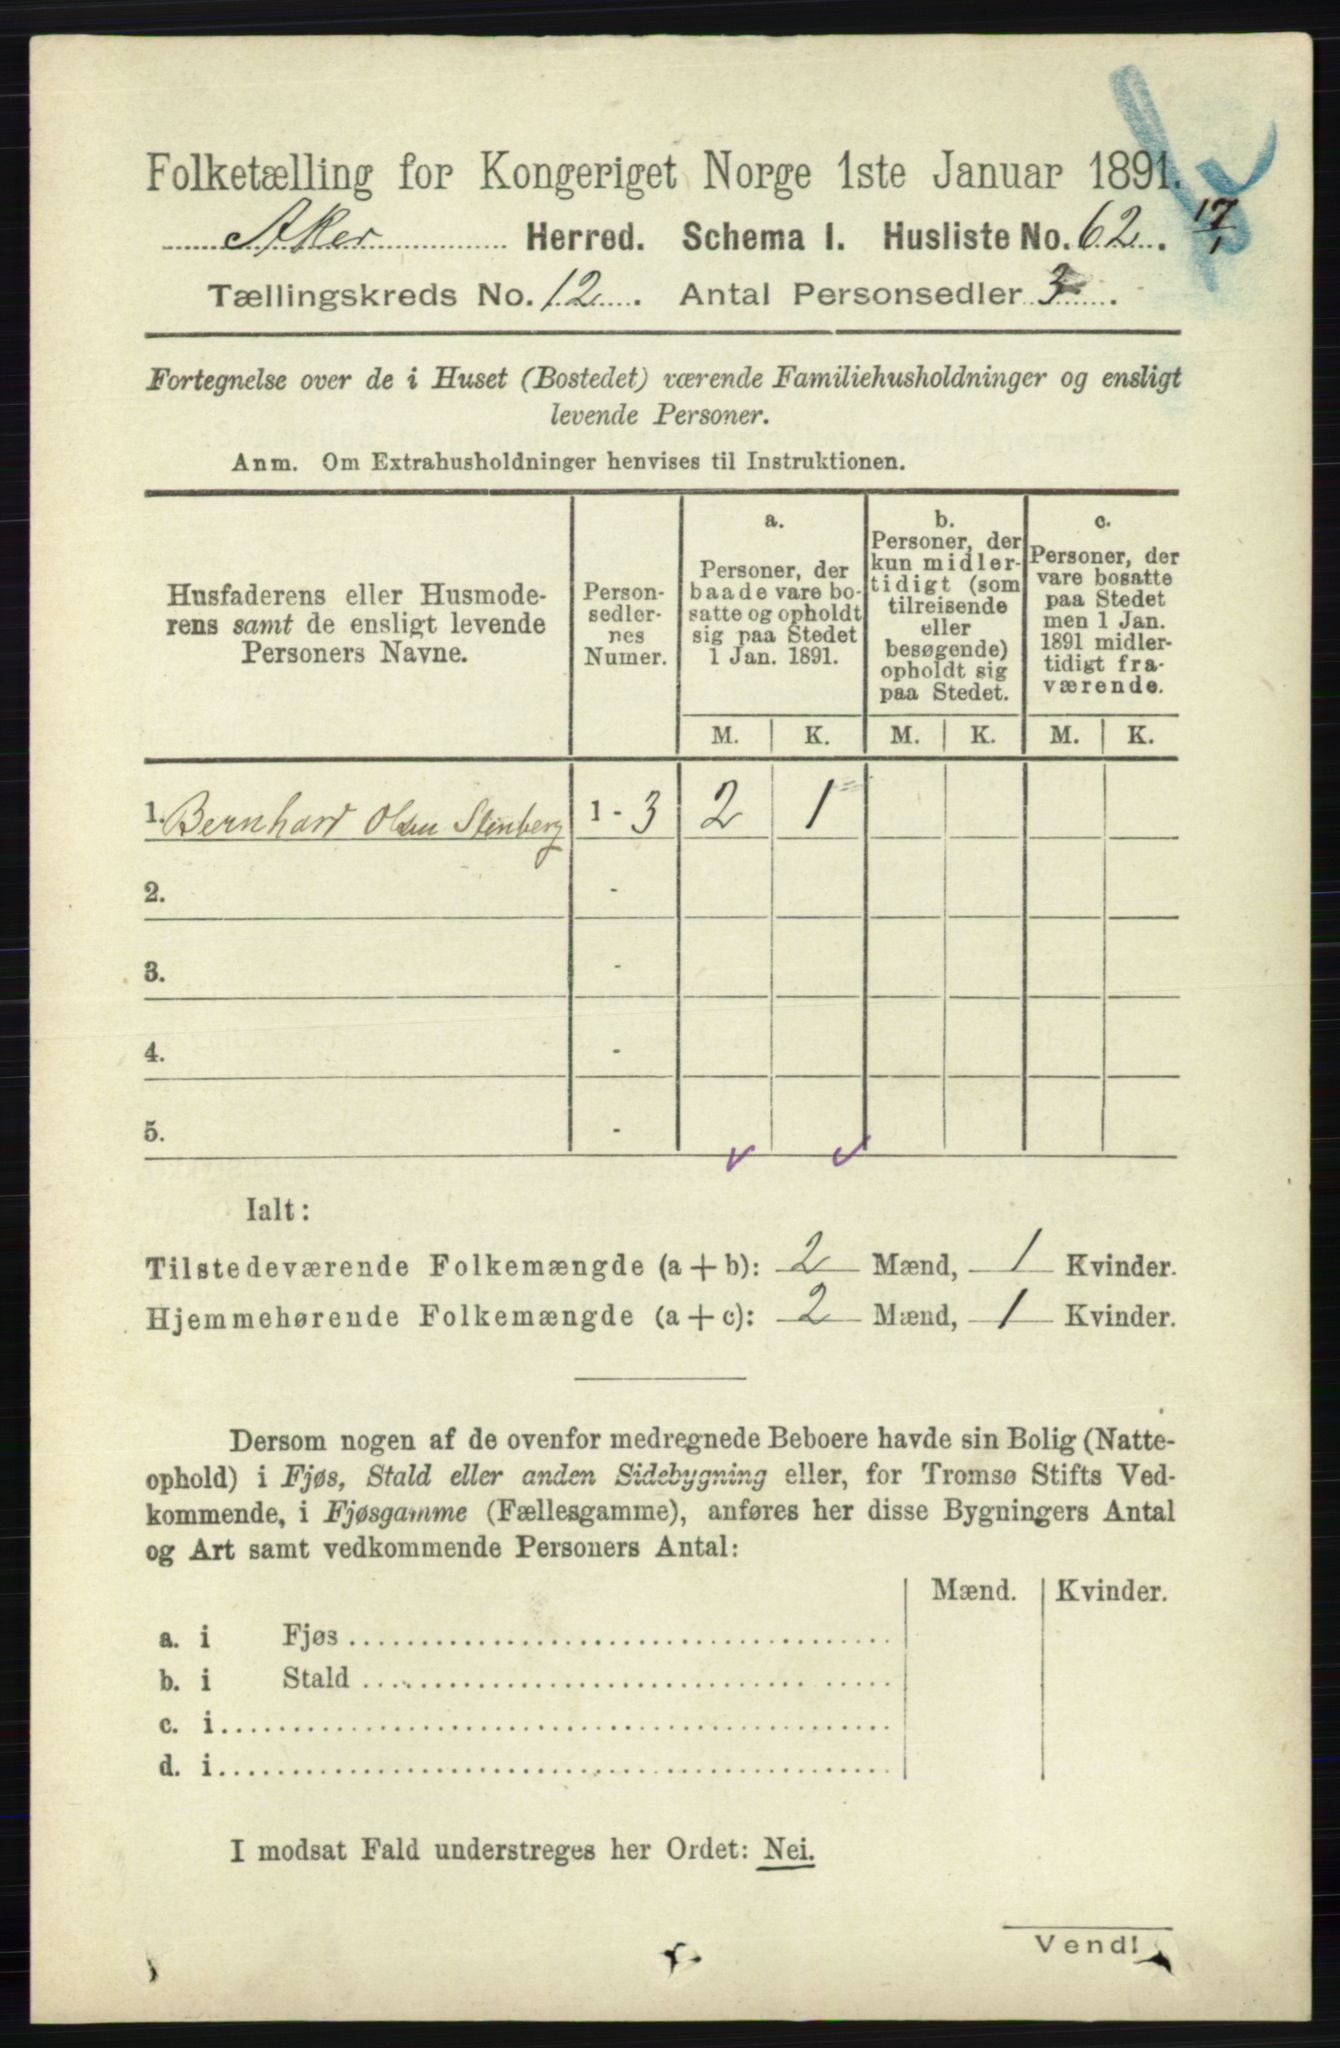 Folketælling for Kongeriget Norge 1ste Januar 1891.
Aker Herred. Schema I. Husliste No. 62. 17/1
Tællingskreds No. 12. Antal Personsedler 3.
Fortegnelse over de i Huset (Bostedet) værende Familiehusholdninger og ensligt
levende Personer.
Anm. Om Extrahusholdninger henvises til Instruktionen.
Husfaderens eller Husmode-
rens samt de ensligt levende
Personers Navne.
Person-
sedler-
nes
Numer.
a.
Personer, der
baade vare bo-
satte og opholdt
sig paa Stedet
1 Jan. 1891.
b.
Personer, der
kun midler-
tidigt (som
tilreisende
eller
besøgende)
opholdt sig
paa Stedet.
c.
Personer, der
vare bosatte
paa Stedet
men 1 Jan.
1891 midler-
tidigt fra-
værende.
M. K. M. K. M. K.
1. Bernhard Olsen Stenberg 1 - 3 2 1
2. -
3. -
4. -
5. -
Ialt:
Tilstedeværende Folkemængde (a + b): 2 Mænd, 1 Kvinder.
Hjemmehørende Folkemængde (a + c): 2 Mænd, 1 Kvinder.
Dersom nogen af de ovenfor medregnede Beboere havde sin Bolig (Natte-
ophold) i Fjøs, Stald eller anden Sidebygning eller, for Tromsø Stifts Ved-
kommende, i Fjøsgamme (Fællesgamme), anføres her disse Bygningers Antal
og Art samt vedkommende Personers Antal:
Mænd. Kvinder.
a. i Fjøs
b. i Stald
c. i
d. i
I modsat Fald understreges her Ordet: Nei.
Vend!